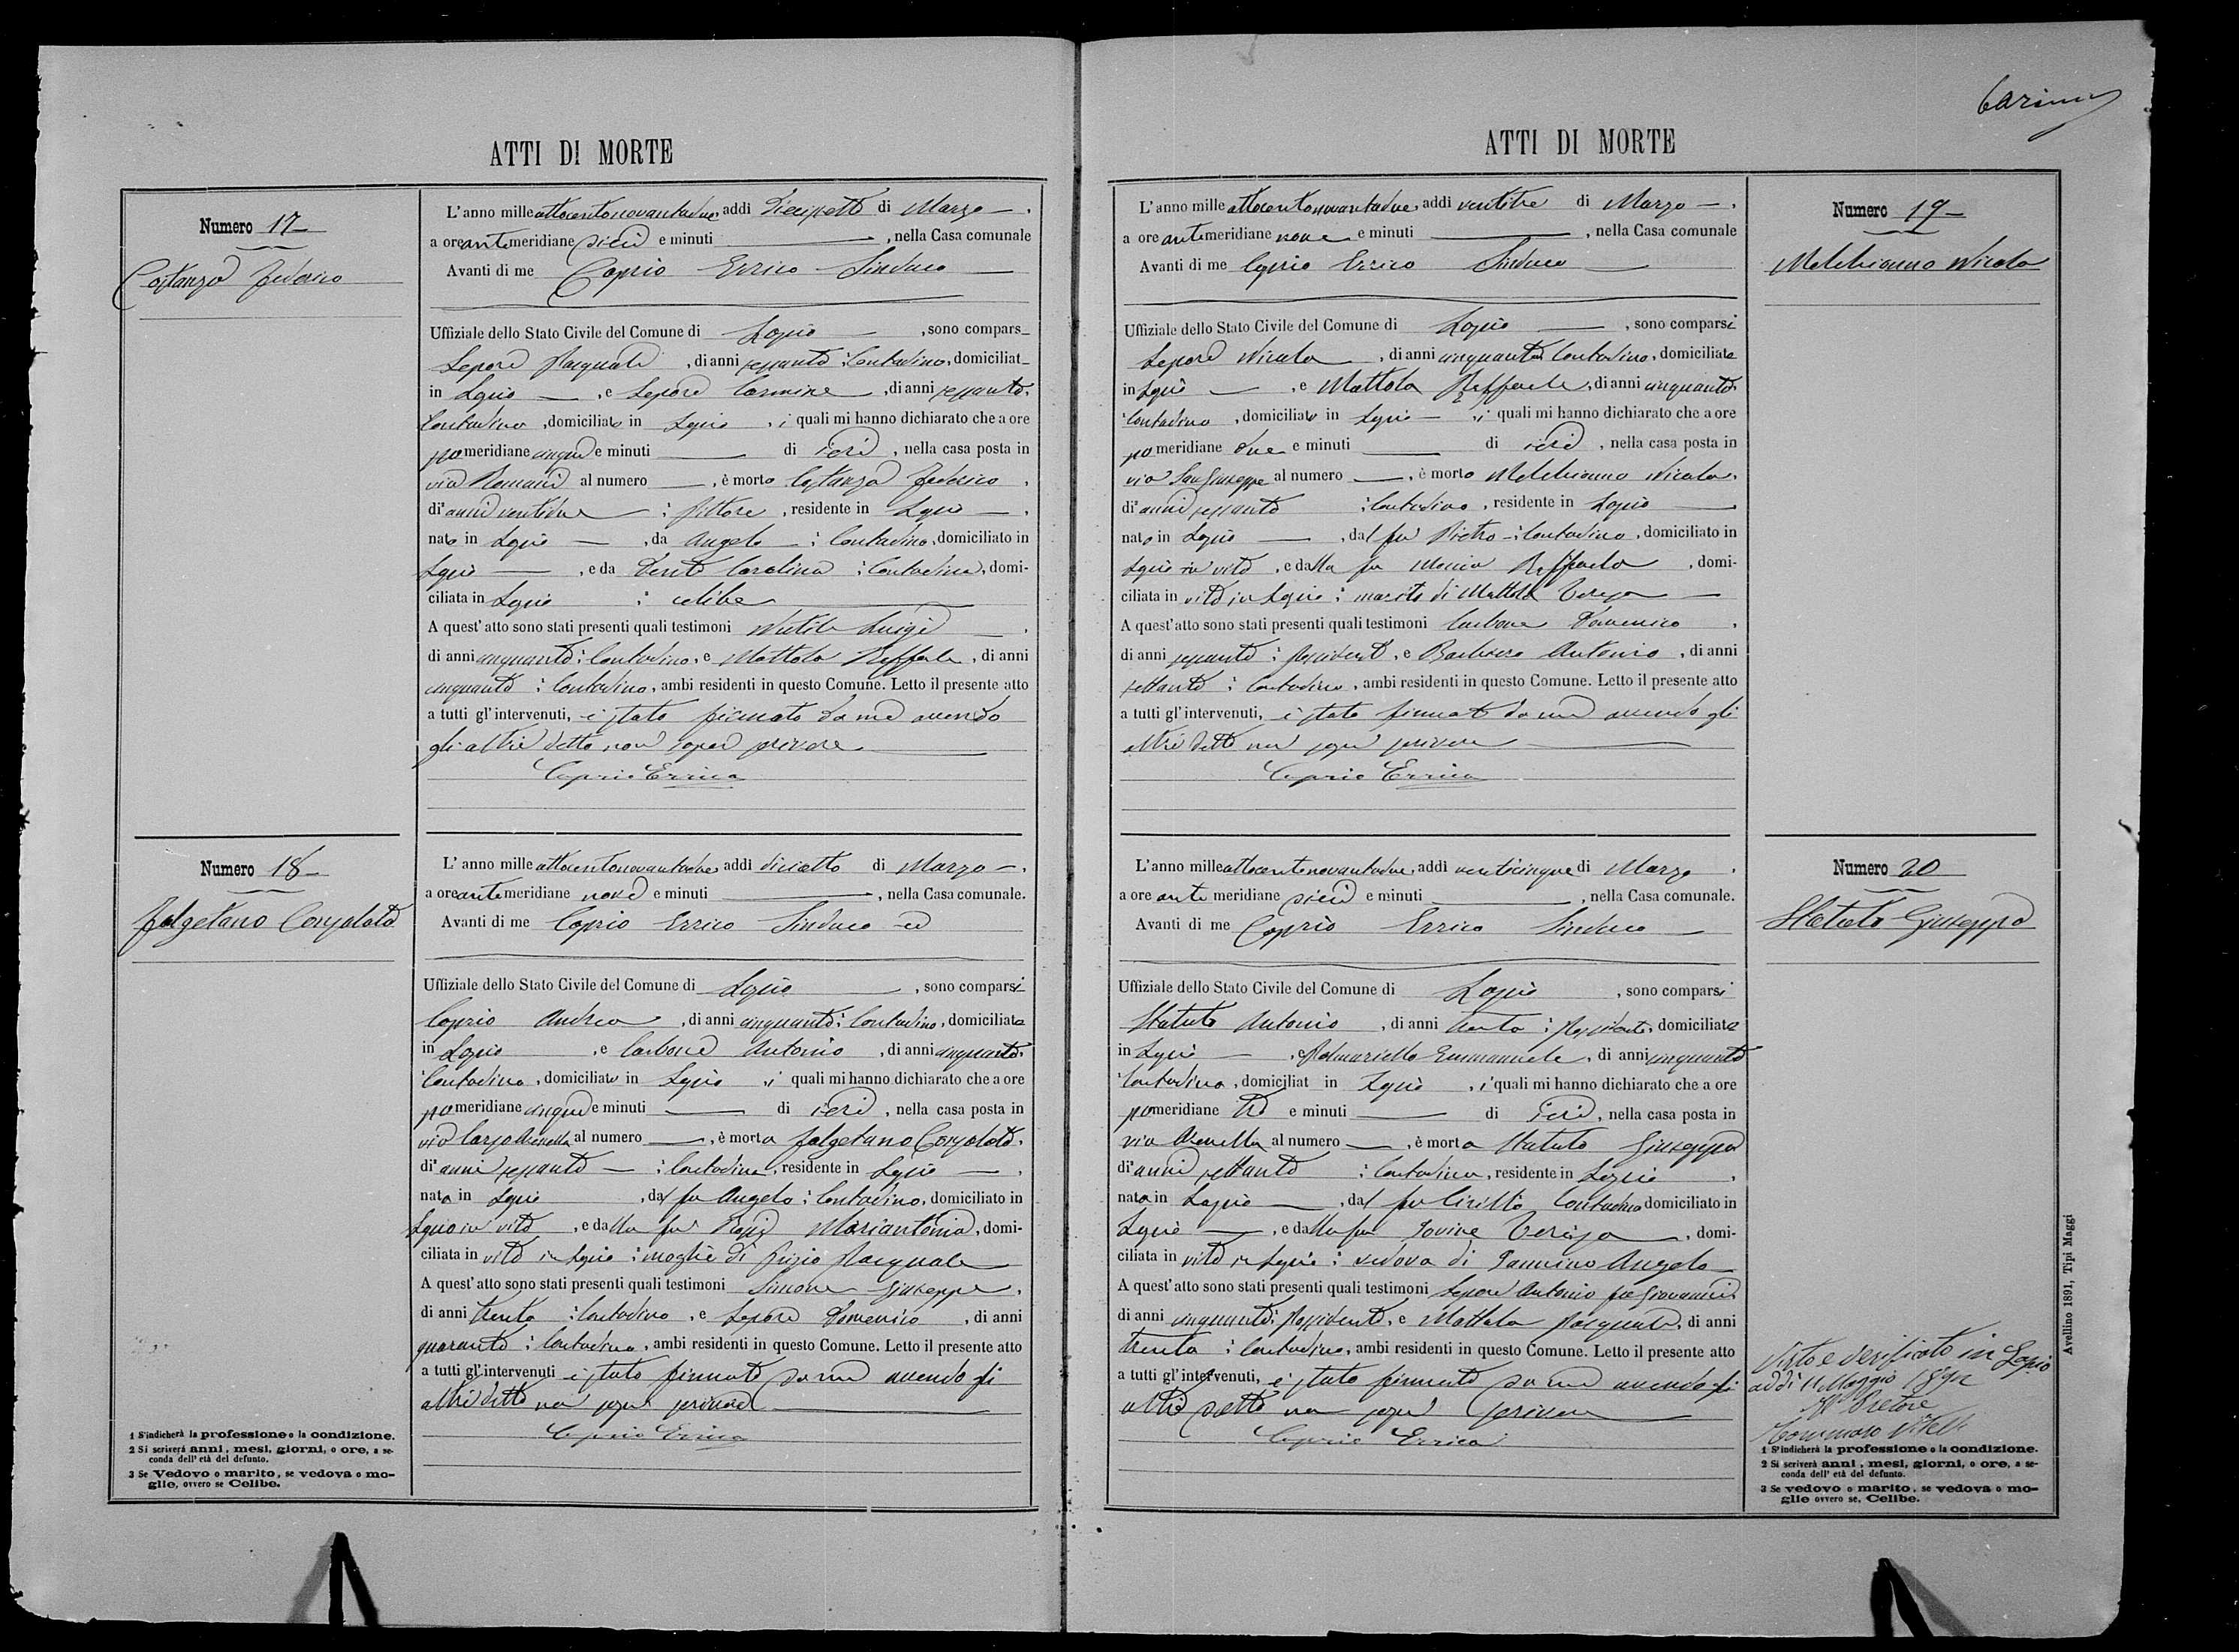 Carimm
ATTI DI MORTE
Numero 17
Costanza Federico
L'anno mille ottocentonovantadue, addi Diecisette di Marzo
a ore antimeridiane dieci e minuti , nella Casa comunale
Avanti di me Caprio Errico Sindaco
Uffiziale dello Stato Civile del Comune di Lapio , sono compars
Lepore Pasquale , di anni sessanta : Contadino, domiciliat
in Lapio , e Lepore Carmine , di anni sessanta,
Contadino , domiciliato in Lapio , i quali mi hanno dichiarato che a ore
pomeridiane cinque e minuti di ieri , nella casa posta in
via Romani al numero , è morto Costanza Federico ,
di anni ventidue : Pittore , residente in Lapio ,
nato in Lapio , da Angelo : Contadino, domiciliato in
Lapio , e da Carolina : Contadina, domi-
ciliata in Lapio : celibe
A quest' atto sono stati presenti quali testimoni Luigi ,
di anni cinquanta : Contadino, e Mattola Raffaele , di anni
cinquanta : Contadino , ambi residenti in questo Comune. Letto il presente atto
a tutti gl' intervenuti, è stato firmato da me avendo
gli altri detto non saper scrivere
Caprio Errico
Numero 18
Falzetano Consolata
L' anno mille ottocentonovantadue addi diciotto di Marzo
a ore antimeridiane nove e minuti , nella Casa comunale.
Avanti di me Caprio Errico Sindaco
Uffiziale dello Stato Civile del Comune di Lapio , sono comparsi
Caprio Andrea , di anni cinquanta : Contadino, domiciliato
in Lapio , e Carbone Antonio , di anni cinquanta,
Contadino , domiciliato in Lapio , i quali mi hanno dichiarato che a ore
pomeridiane cinque e minuti di ieri , nella casa posta in
via Largo al numero , è morta Falzetano Consolata,
di anni sessanta : Contadina, residente in Lapio .
nata in Lapio , dal fu Angelo : Contadino, domiciliato in
Lapio in vita , e dalla fu Mariantonia, domi-
ciliata in vita in Lapio : moglie di Pasquale
A quest' atto sono stati presenti quali testimoni Simone Giuseppe ,
di anni trenta : Contadino , e Lepore Domenico , di anni
quaranta : Contadino , ambi residenti in questo Comune. Letto il presente atto
a tutti gl' intervenuti è stato firmato da me avendo gli
altri detto non saper scrivere
Caprio Errico
1 S'indicherà la professione o la condizione.
2 Si scriverà anni, mesi, giorni, o ore, a se-
conda dell' età del defunto.
3 Se Vedovo o marito, se vedova o mo-
glie, ovvero se Celibe.
ATTI DI MORTE
Numero 19
Melchionno Nicola
L' anno mille ottocentonovantadue, addi ventitre di Marzo .
a ore antimeridiane nove e minuti , nella Casa comunale
Avanti di me Caprio Errico Sindaco
Uffiziale dello Stato Civile del Comune di Lapio , sono comparsi
Lepore Nicola , di anni cinquanta Contadino, domiciliato
in Lapio , e Mattola Raffaele , di anni cinquanta
Contadino , domiciliato in Lapio , i quali mi hanno dichiarato che a ore
pomeridiane due e minuti di ieri , nella casa posta in
via San Giuseppe al numero , è morto Melchionno Nicola,
di anni sessanta : Contadino , residente in Lapio
nato in Lapio , dal fu Pietro : Contadino , domiciliato in
Lapio in vita , e dalla fu Raffaela , domi-
ciliata in vita in Lapio : marito di Mattola Teresa
A quest' atto sono stati presenti quali testimoni Carbone Domenico ,
di anni sessanta : Possidente , e Barbiero Antonio , di anni
settanta : Contadino , ambi residenti in questo Comune. Letto il presente atto
a tutti gl' intervenuti, è stato firmato da me avendo gli
altri detto non saper scrivere
Caprio Errico
Numero 20
Statuto Giuseppa
L' anno mille ottocentonovantadue, addi venticinque di Marzo .
a ore antimeridiane dieci e minuti , nella Casa comunale.
Avanti di me Caprio Errico Sindaco
Uffiziale dello Stato Civile del Comune di Lapio , sono comparsi
Statuto Antonio , di anni trenta : Possidente, domiciliato
in Lapio , e Palmariello Emmanuele , di anni cinquanta
Contadino , domiciliat in Lapio , i quali mi hanno dichiarato che a ore
pomeridiane tre e minuti di ieri , nella casa posta in
via al numero , è morta Statuto Giuseppa
di anni settanta : Contadina , residente in Lapio .
nata in Lapio , dal fu Cirillo Contadino domiciliato in
Lapio , e dalla fu Iovine Teresa , domi-
ciliata in vita in Lapio : vedova di Iannino Angelo
A quest' atto sono stati presenti quali testimoni Lepore Antonio fu Giovanni
di anni cinquanta : Possidente , e Mattola Pasquale, di anni
trenta : Contadino , ambi residenti in questo Comune. Letto il presente atto
a tutti gl' intervenuti, è stato firmato da me avendo gli
altri detto non saper scrivere
Caprio Errico
Visto e verificato in Lapio
addì 11 Maggio 1892
Il Pretore
1 S'indicherà la professione o la condizione.
2 Si scriverà anni, mesi, giorni, o ore, a se-
conda dell' età del defunto.
3 Se vedovo o marito, se vedova o mo-
glie ovvero se, Celibe.
Avellino 1891, Tipi Maggi